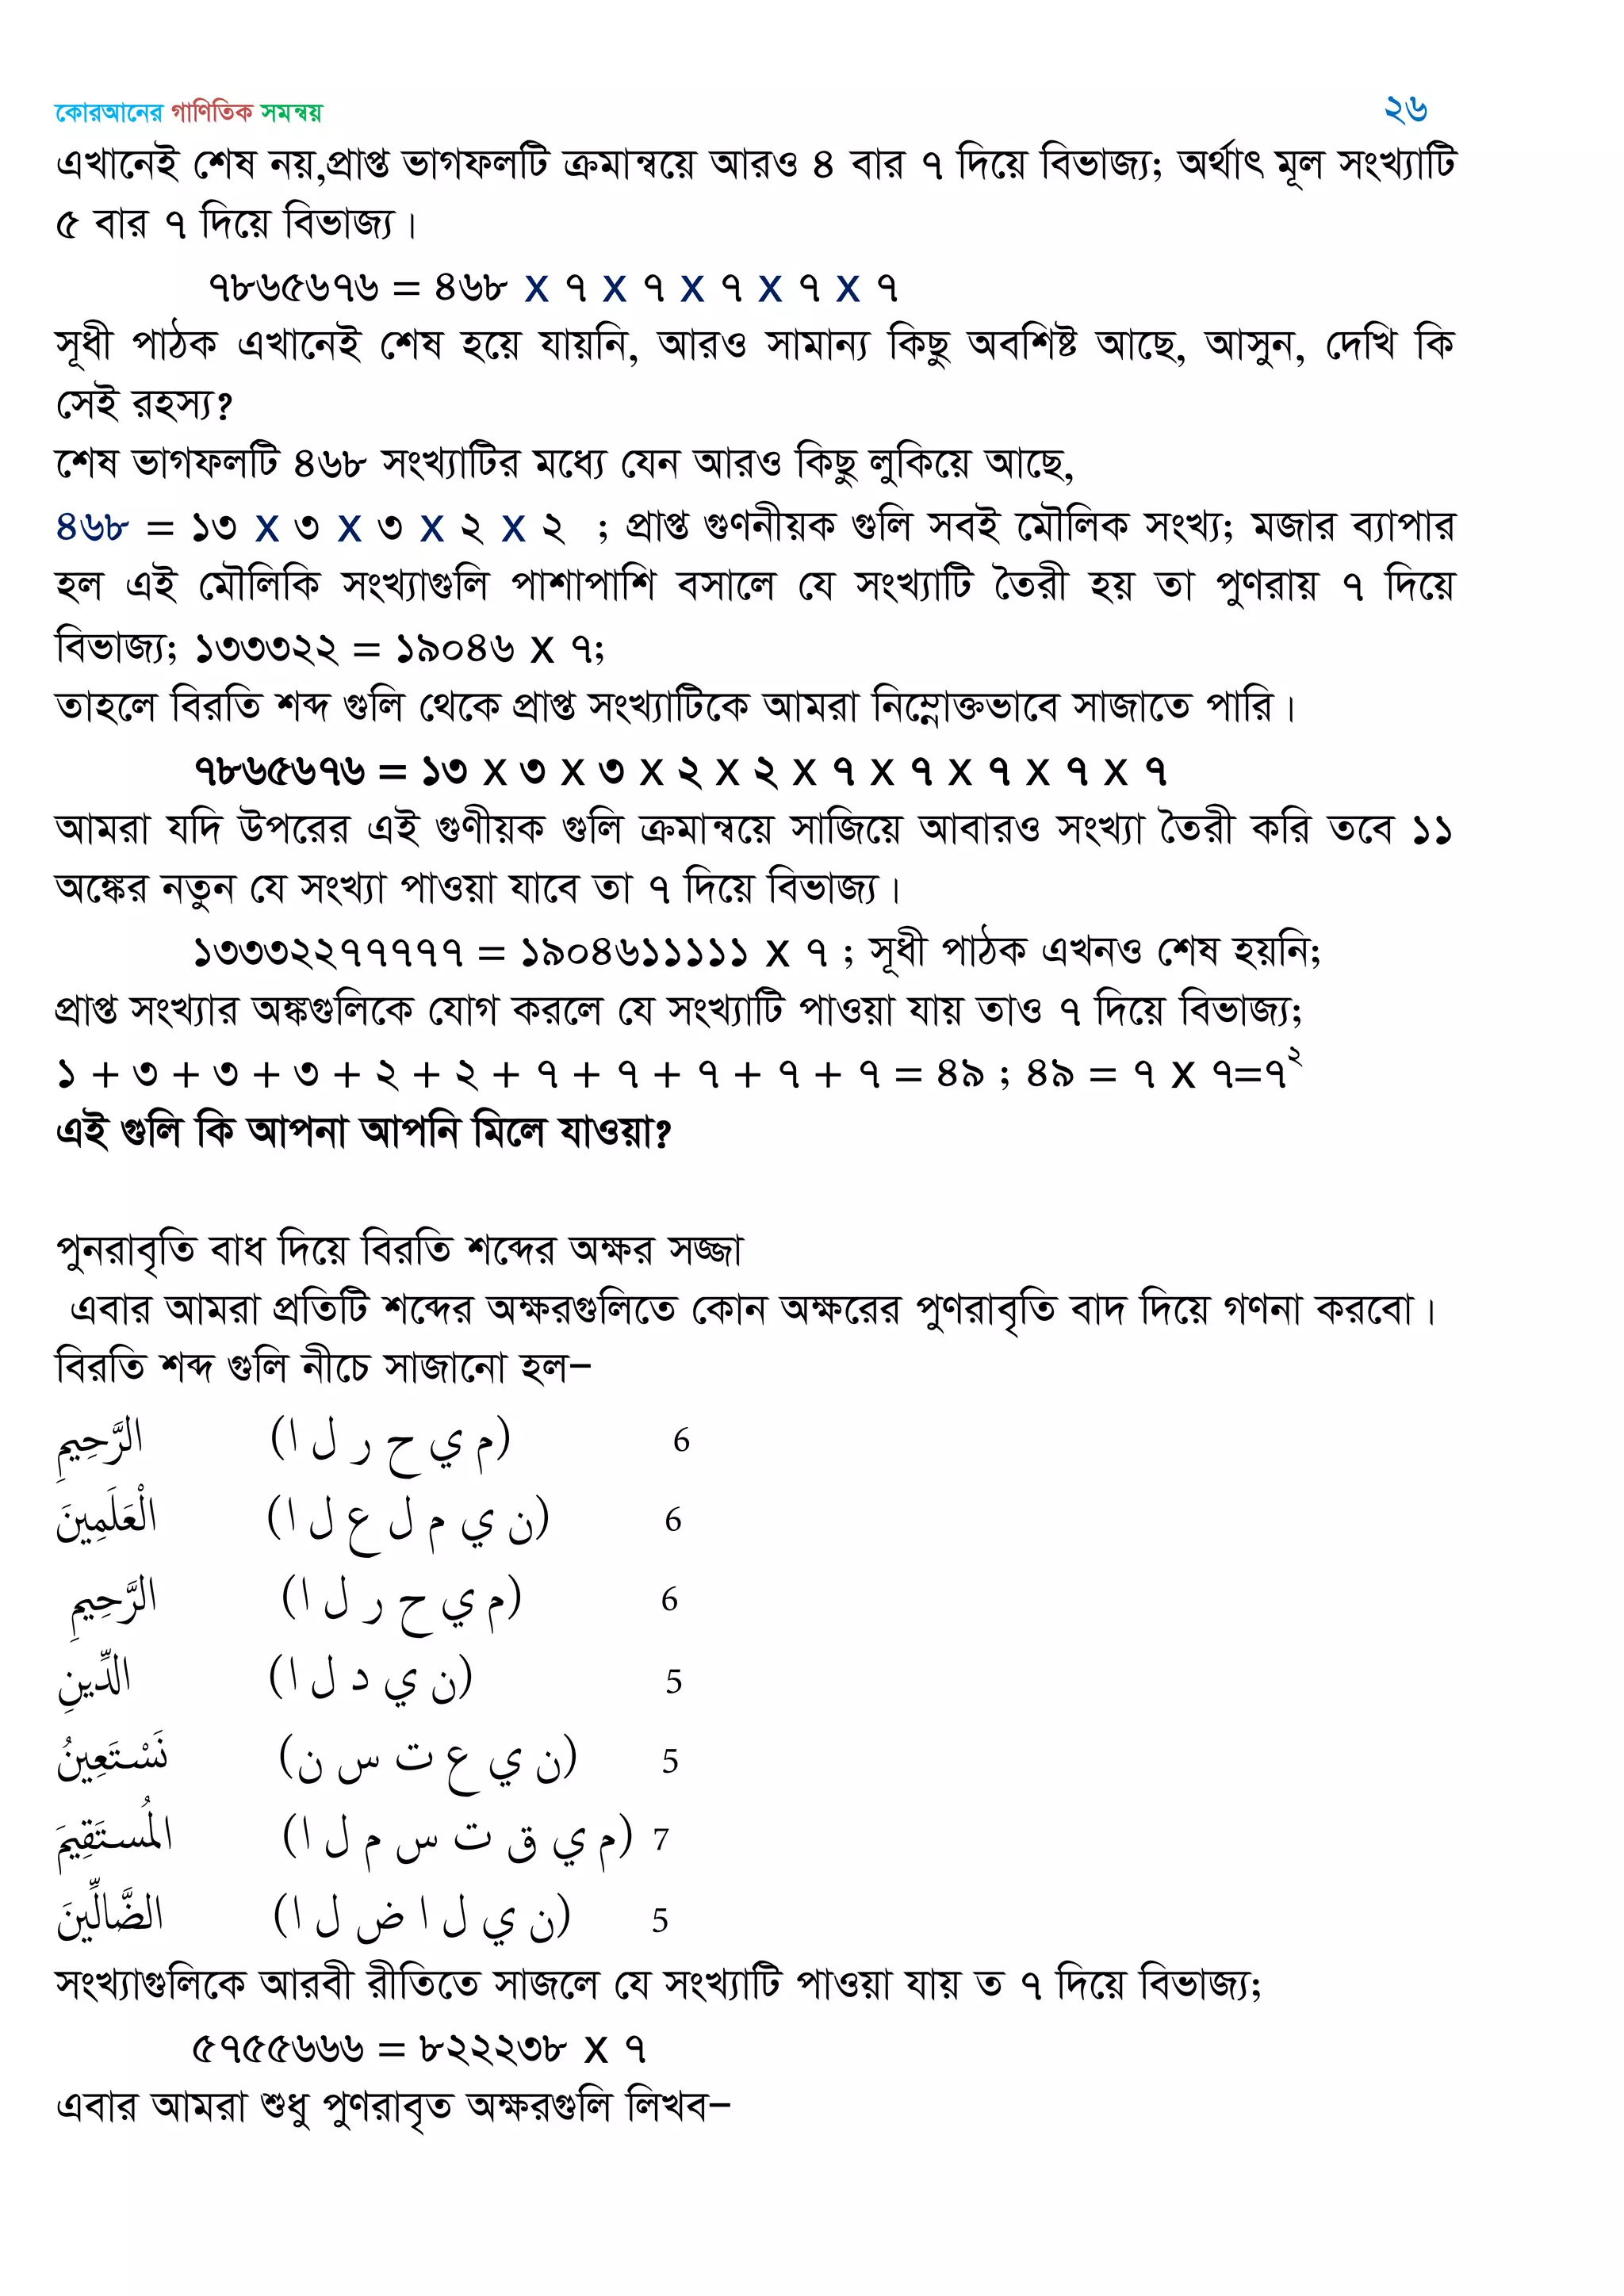 কোরআনের গাণিতিক সমন্বয় ২৬
এখানেই শেষ নয়,প্রাপ্ত ভাগফলটি ক্রমান্বয়ে আরও ৪ বার ৭ দিয়ে বিভাজ্য; অর্থাৎ মূল সংখ্যাটি
৫ বার ৭ দিয়ে বিভাজ্য।
৭৮৬৫৬৭৬ = ৪৬৮ x ৭ x ৭ x ৭ x ৭ x ৭
সূধী পাঠক এখানেই শেষ হয়ে যায়নি, আরও সামান্য কিছু অবশিষ্ট আছে, আসুন, দেখি কি
সেই রহস্য?
শেষ ভাগফলটি ৪৬৮ সংখ্যাটির মধ্যে যেন আরও কিছু লুকিয়ে আছে,
৪৬৮ = ১৩ x ৩ x ৩ x ২ x ২ ; প্রাপ্ত গুণনীয়ক গুলি সবই মৌলিক সংখ্য; মজার ব্যাপার
হল এই মৌলিকি সংখ্যাগুলি পাশাপাশি বসালে যে সংখ্যাটি তৈরী হয় তা পুণরায় ৭ দিয়ে
বিভাজ্য; ১৩৩৩২২ = ১৯০৪৬ x ৭;
তাহলে বিরতি শব্দ গুলি থেকে প্রাপ্ত সংখ্যাটিকে আমরা নিম্নোক্তভাবে সাজাতে পারি।
৭৮৬৫৬৭৬ = ১৩ x ৩ x ৩ x ২ x ২ x ৭ x ৭ x ৭ x ৭ x ৭
আমরা যদি উপরের এই গুণীয়ক গুলি ক্রমান্বয়ে সাজিয়ে আবারও সংখ্যা তৈরী করি তবে ১১
অঙ্কের নতুন যে সংখ্যা পাওয়া যাবে তা ৭ দিয়ে বিভাজ্য।
১৩৩৩২২৭৭৭৭৭ = ১৯০৪৬১১১১১ x ৭ ; সূধী পাঠক এখনও শেষ হয়নি;
প্রাপ্ত সংখ্যার অঙ্কগুলিকে যোগ করলে যে সংখ্যাটি পাওয়া যায় তাও ৭ দিয়ে বিভাজ্য;
১ + ৩ + ৩ + ৩ + ২ + ২ + ৭ + ৭ + ৭ + ৭ + ৭ = ৪৯ ; ৪৯ = ৭ x ৭=৭²
এই গুলি কি আপনা আপনি মিলে যাওয়া?
পুনরাবৃতি বাধ দিয়ে বিরতি শব্দের অক্ষর সজ্জা
এবার আমরা প্রতিটি শব্দের অক্ষরগুলিতে কোন অক্ষরের পুণরাবৃতি বাদ দিয়ে গণনা করবো।
বিরতি শব্দ গুলি নীচে সাজানো হল−
الرَّحِيمِ (م ي ح ر ل ا) 6
الْعَلَمِينَ (ن ي م ل ع ل ا) 6
الرَّحِيمِ (م ي ح ر ل ا) 6
الدِّينِ (ن ي د ل ا) 5
نَسْتَعِينُ (ن ي ع ت س ن) 5
الْمُستَقِيمَ (م ي ق ت س م ل ا) 7
الضَّالِّينَ (ن ي ل ا ض ل ا) 5
সংখ্যাগুলিকে আরবী রীতিতে সাজলে যে সংখ্যাটি পাওয়া যায় ত ৭ দিয়ে বিভাজ্য;
৫৭৫৫৬৬৬ = ৮২২২৩৮ x ৭
এবার আমরা শুধু পুণরাবৃত অক্ষরগুলি লিখব−